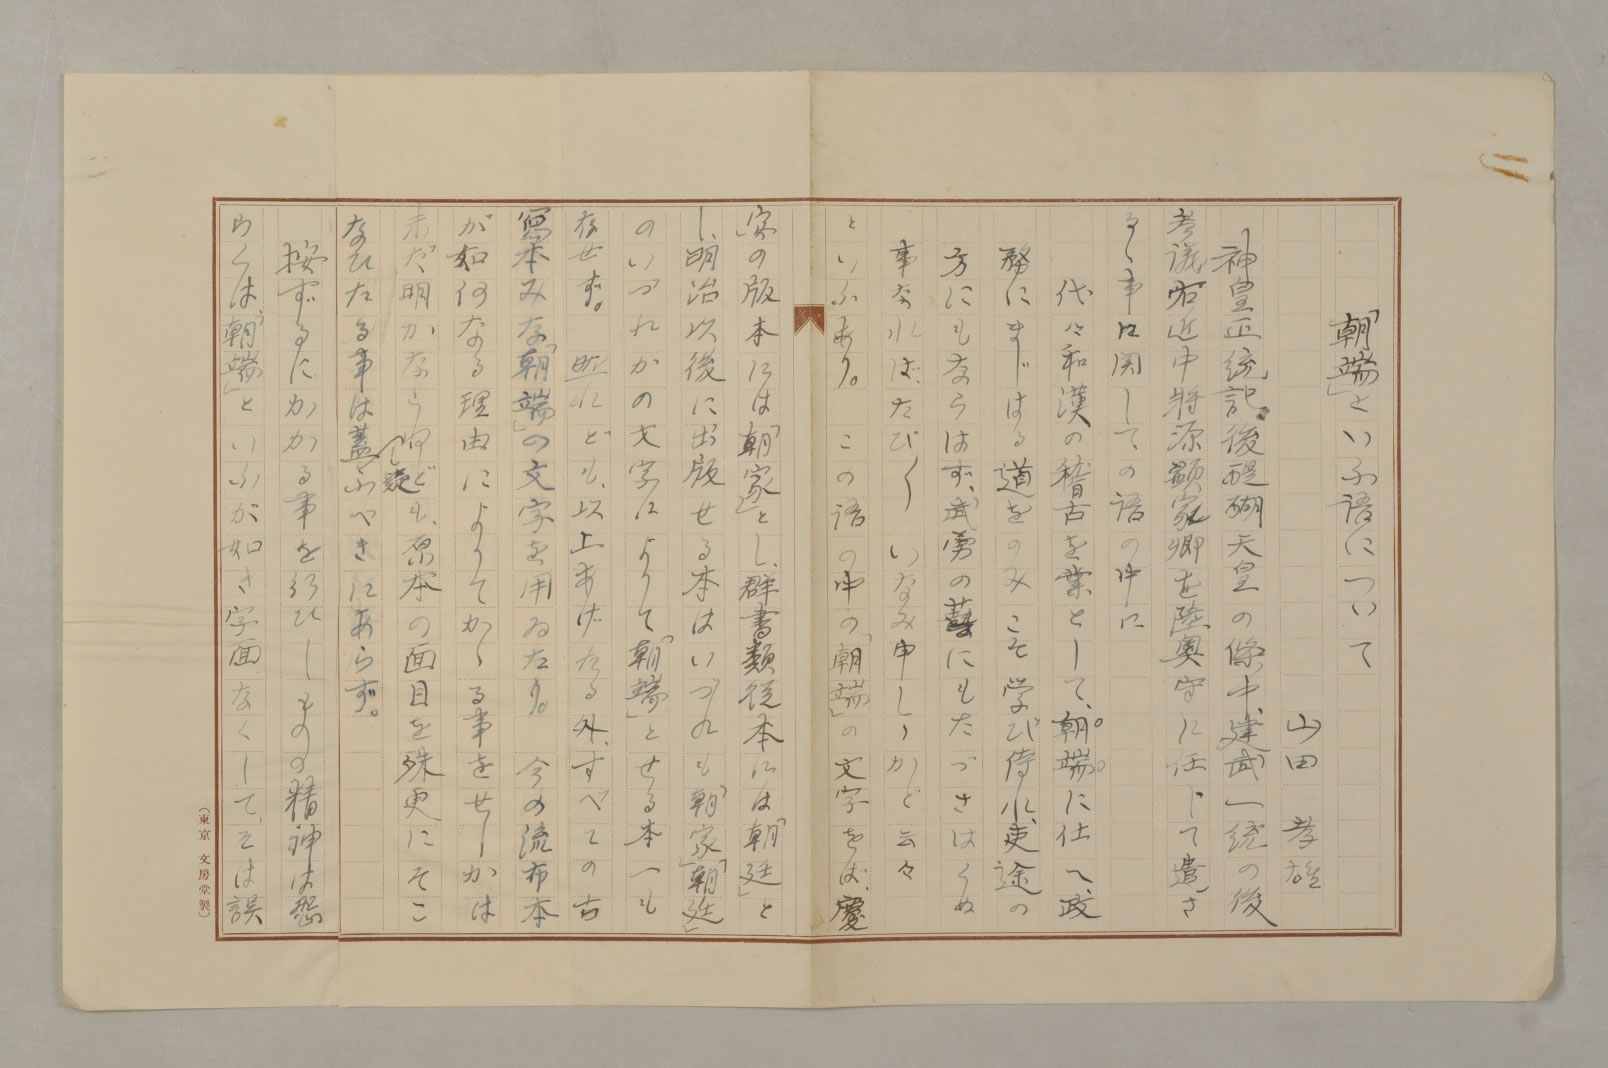 「朝端」といふ語について
山田 孝雄
神皇正統記、後醍醐天皇の條中、建武一統の後
参議右近中将源顕家卿を陸奥守に任じて遣さ
るゝ事に関しての語の中に
代々和漢の稽古を業として、朝端に仕へ、政
務にまじはる道をのみこそ学び侍れ、吏途の
方にもならはず、武勇の藝にもたづさはらぬ
事なれば、たび〱いなみ申しゝかど云々
といふあり。この語の中の「朝端」の文字をば、慶
家の版本には「朝家」とし、群書類従本には「朝廷」と
し、明治以後に出版せる本はいづれも「朝家」「朝廷」
のいづれかの文字によりて「朝端」とせる本一も
存せず。然れども、以上あげたる外、すべての古
寫本みな「朝端」の文字を用ゐたり。今の流布本
が如何なる理由によりてかゝる事をせしかは
未だ明かならねども、原本の面目を殊更にそこ
なひたる事は蓋し疑ふべきにあらず。
按ずるにかかる事を行ひしものの精神は恐
らくは「朝端」といふが如き字面なくして、そは誤
(東京 文房堂製)